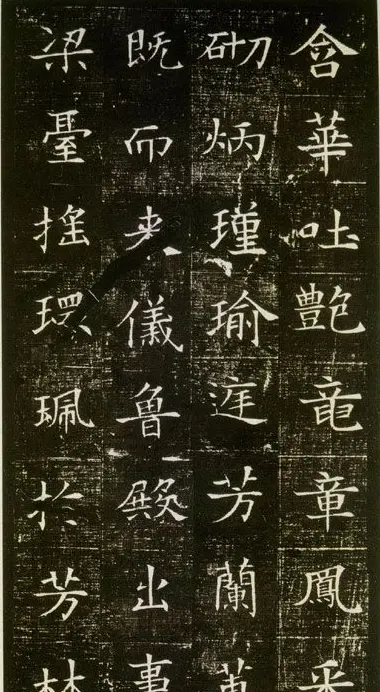 含華吐艷竜章鳳采
砌炳瑾瑜庭芳蘭
既而来儀魯殿出事
梁臺搖環珮於芳林